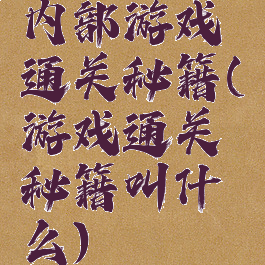 内部游戏
通关秘籍(
游戏通关
秘籍叫什
么)